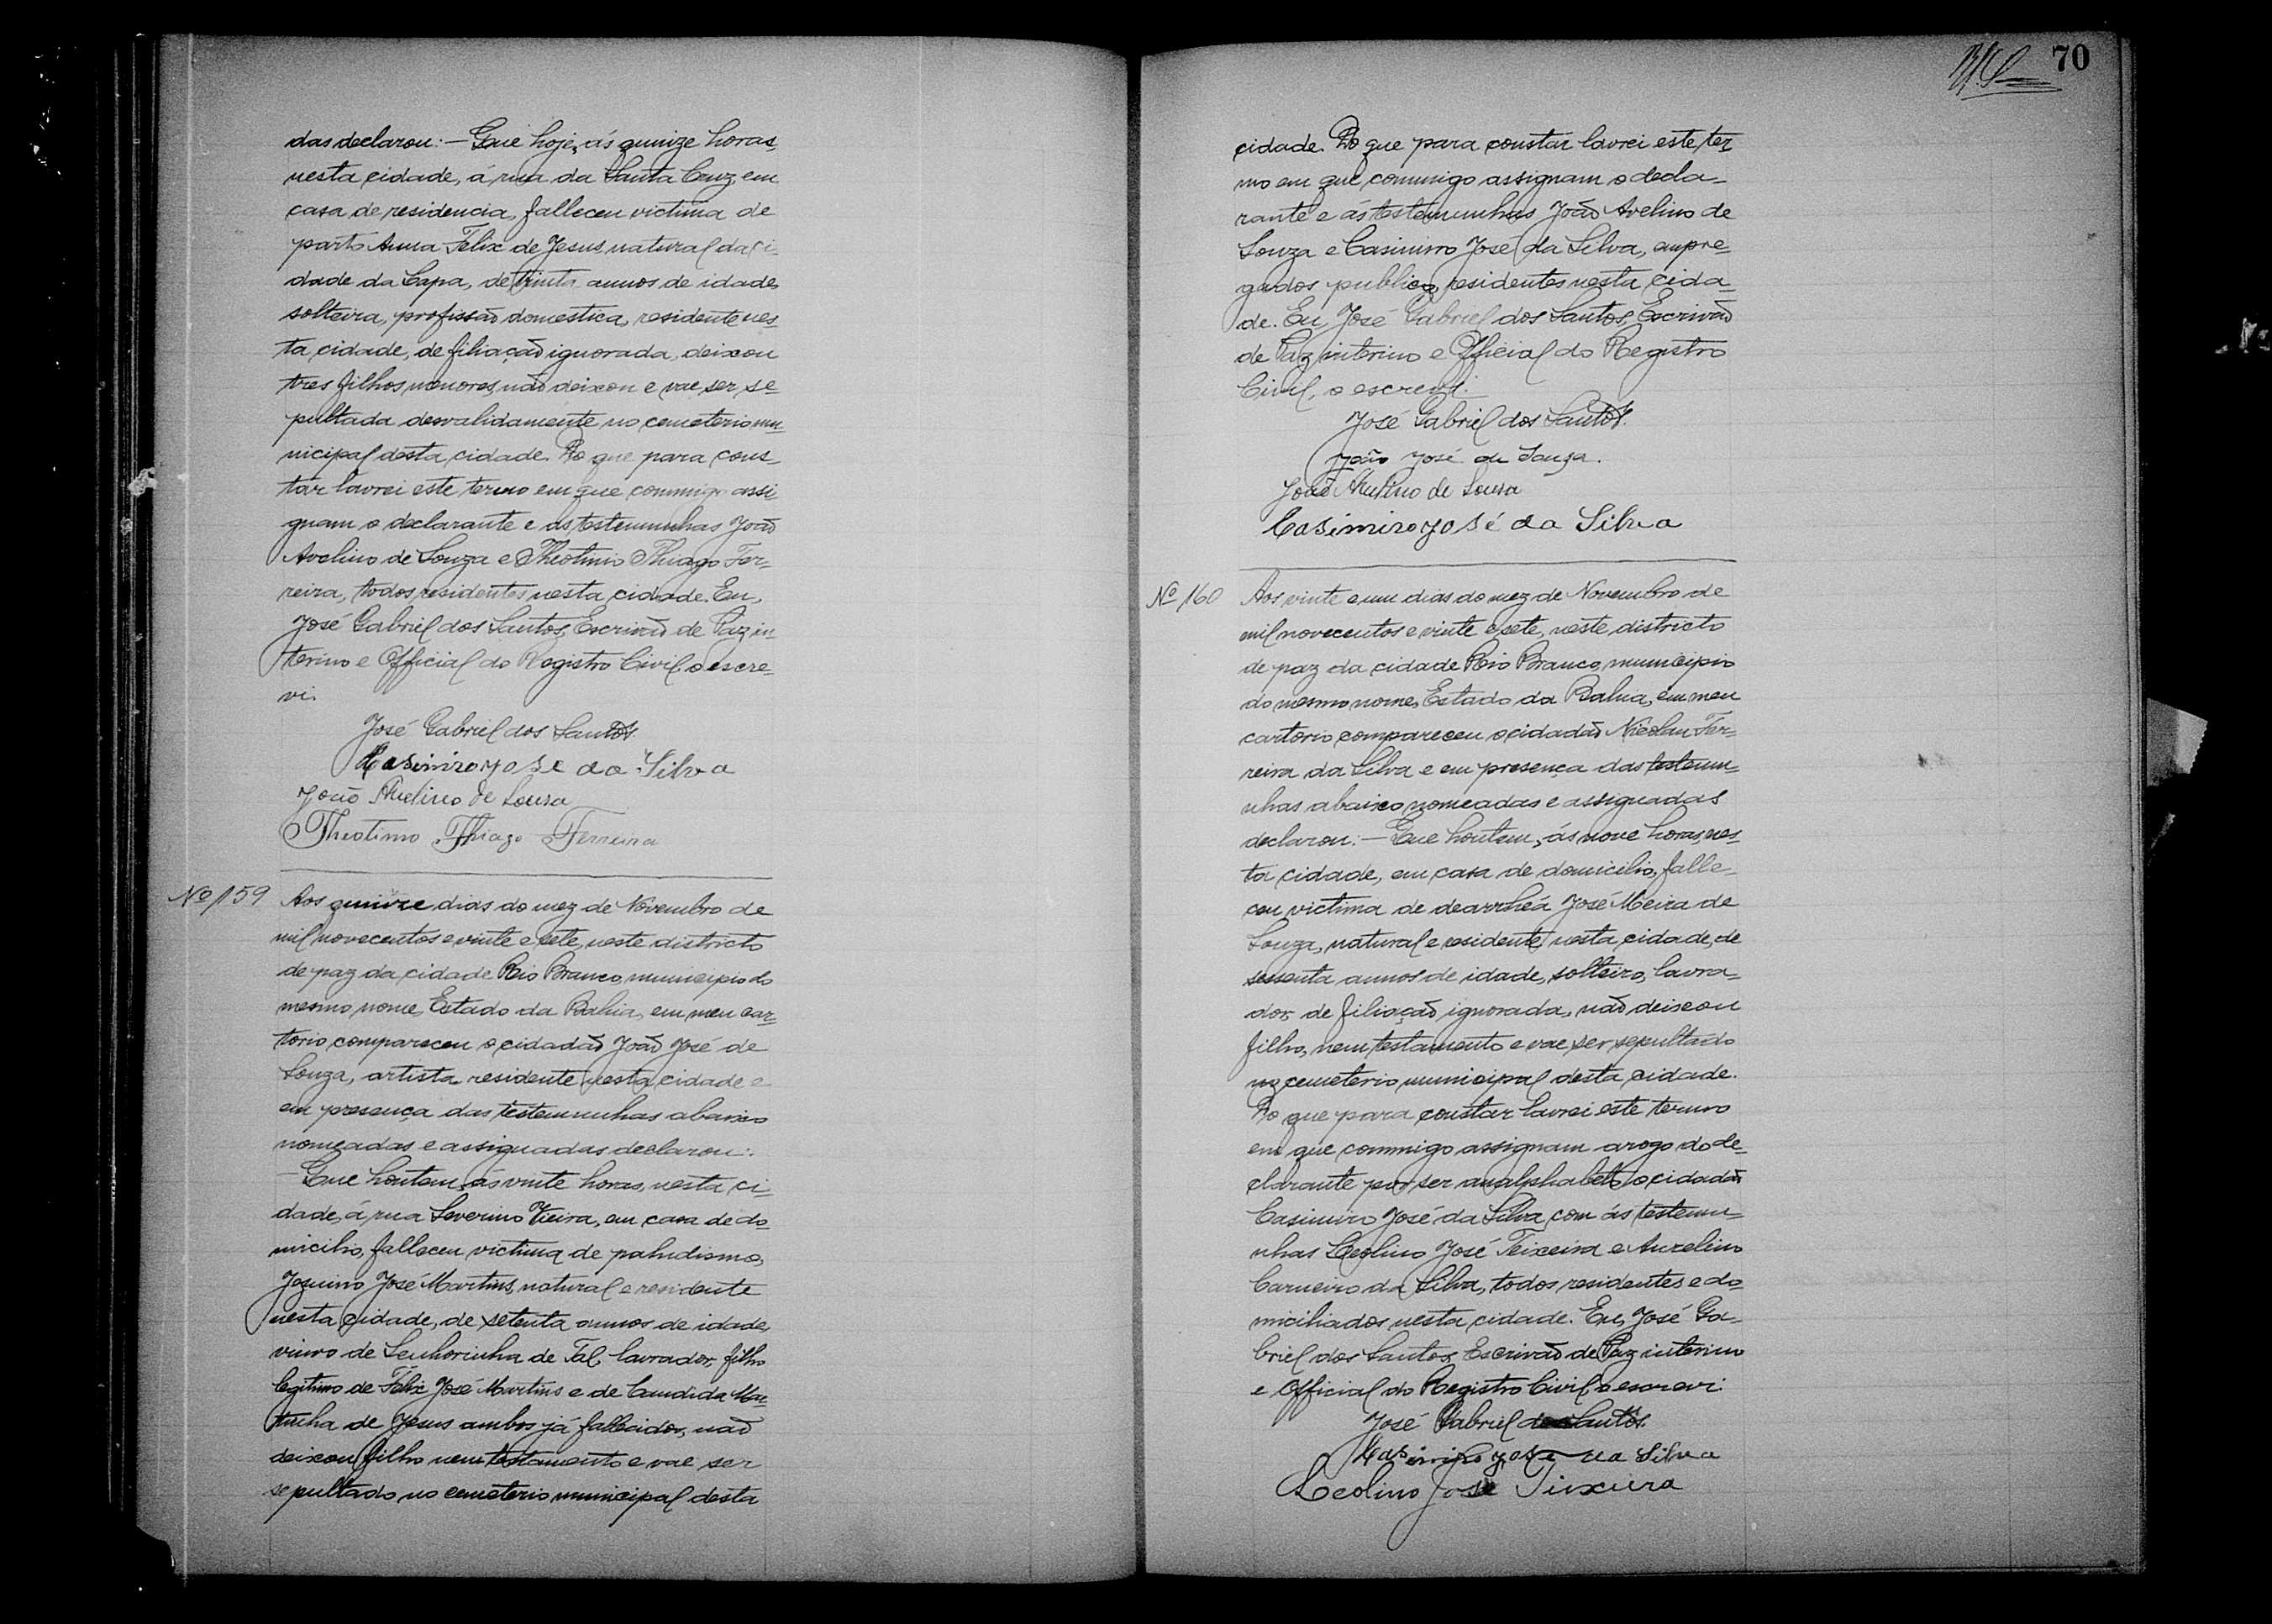 das declarou: — Que hoje, ás quinze horas,
nesta cidade, á rua da Santa Cruz, em
casa de residencia, falleceu victima de
parto Anna Felix de Jesus, natural da ci-
dade da Lapa, de trinta annos de idade,
solteira, profissão domestica, residente nes-
ta cidade, de filiação ignorada, deixou
tres filhos menores, não deixou e vae ser se-
pultada desvalidamente no cemeterio mu-
nicipal desta cidade. Do que para cons-
tar lavrei este termo em que commigo assi
gnam o declarante e as testemunhas João
Avelino de Souza e Theotimo Thiago Fer-
reira, todos residentes nesta cidade. Eu,
José Gabriel dos Santos, Escrivão de Paz in
terino e Official do Registro Civil, o escre-
vi.
José Gabriel dos Santos.
Casimiro José da Silva
João Avelino de Sousa
Theotimo Thiago Ferreira
Nº 159
Aos quinze dias do mez de Novembro de
mil novecentos e vinte e sete, neste districto
de paz da cidade Rio Branco, municipio do
mesmo nome, Estado da Bahia, em meu car-
torio compareceu o cidadão João José de
Souza, artista residente nesta cidade e
em presença das testemunhas abaixo
nomeadas e assignadas declarou:
— Que hontem, ás vinte horas, nesta ci-
dade, á rua Severino Vieira, em casa de do-
micilio, falleceu victima de paludismo,
José Martins, natural e residente
nesta cidade, de setenta annos de idade,
viuvo de Senhorinha de Tal, lavrador, filho
legitimo de Felix José Martins e de Candida Mar-
tinha de Jesus ambos já fallecidos, não
deixou filho nem testamento e vae ser
sepultado no cemeterio municipal desta
70
cidade. Do que para constar lavrei este ter-
mo em que commigo assignam o decla-
rante e ás testemunhas João Avelino de
Souza e Casimiro José da Silva, empre-
gados publicos, residentes nesta cida-
de. Eu, José Gabriel dos Santos, Escrivão
de Paz interino e Official do Registro
Civil, o escrevi.
José Gabriel dos Santos.
João José de Souza.
João Avelino de Sousa
Casimiro José da Silva
Nº 160
Aos vinte e um dias do mez de Novembro de
mil novecentos e vinte e sete, neste districto
de paz da cidade Rio Branco, municipio
do mesmo nome, Estado da Bahia, em meu
cartorio compareceu o cidadão Nicolau Fer-
reira da Silva e em presença das testemu-
nhas abaixo nomeadas e assignadas
declarou: — Que hontem, ás nove horas, nes-
ta cidade, em casa de domicilio, falle-
ceu victima de dearrhéa José Meira de
Souza, natural e residente nesta cidade, de
sessenta annos de idade, solteiro, lavra-
dor, de filiação ignorada, não deixou
filho, nem testamento e vae ser sepultado
no cemeterio municipal desta cidade.
Do que para constar lavrei este termo
em que commigo assignam arogo do de-
clarante por ser analphabeto o cidadão
Casimiro José da Silva, com ás testemu-
nhas Leolino José Teixeira e Aurelino
Carneiro da Silva, todos residentes e do-
miciliados nesta cidade. Eu, José Ga-
briel dos Santos, Escrivão de Paz interino
e Official do Registro Civil, o escrevi.
José Gabriel dos Santos.
Casimiro José da Silva
Leolino José Teixeira